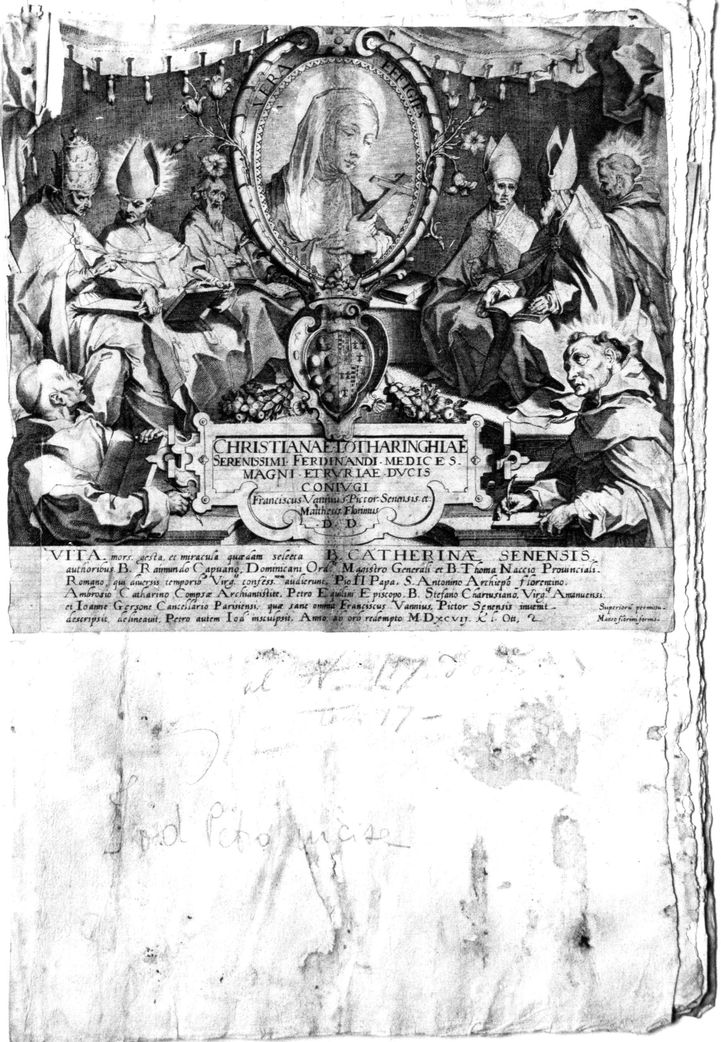 VERA EFFIGIES
CHRISTIANAE LOTHARINGHIAE
SERENISSIMI · FERDINANDI · MEDICES ·
MAGNI · ETRVRIAE · DVCIS
CONIVGI
Franciscus Vannius Pictor Senensis et
Mattheus Florimus
D · D
VITA, mors, gesta, et miracula quædam selecta B. CATHERINÆ SENENSIS,
authoribus B. Raimundo Capuano, Dominicani Ord.s Magistro Generali et B. Thoma Naccio Provinciali.
Romano, qui diversis temporib. Virg. confess. audierunt, Pio II Papa, S. Antonino Archiepo fiorentino.
Ambrosio Catharino Compsæ Archiantistite, Petro Equilini Episcopo. B. Stefano Chartusiano, Virg.s Amanuensi.
et Ioanne Gersone Cancellario Parisiensi, quæ sane omnia Franciscus Vannius, Pictor Senensis invenit
descripsit, delineavit, Petro autem Iod insculpsit. Anno, ab orb redempto M.DXCVII. Ott. 2
Superiorū permissu.
Matteo florimi formis.